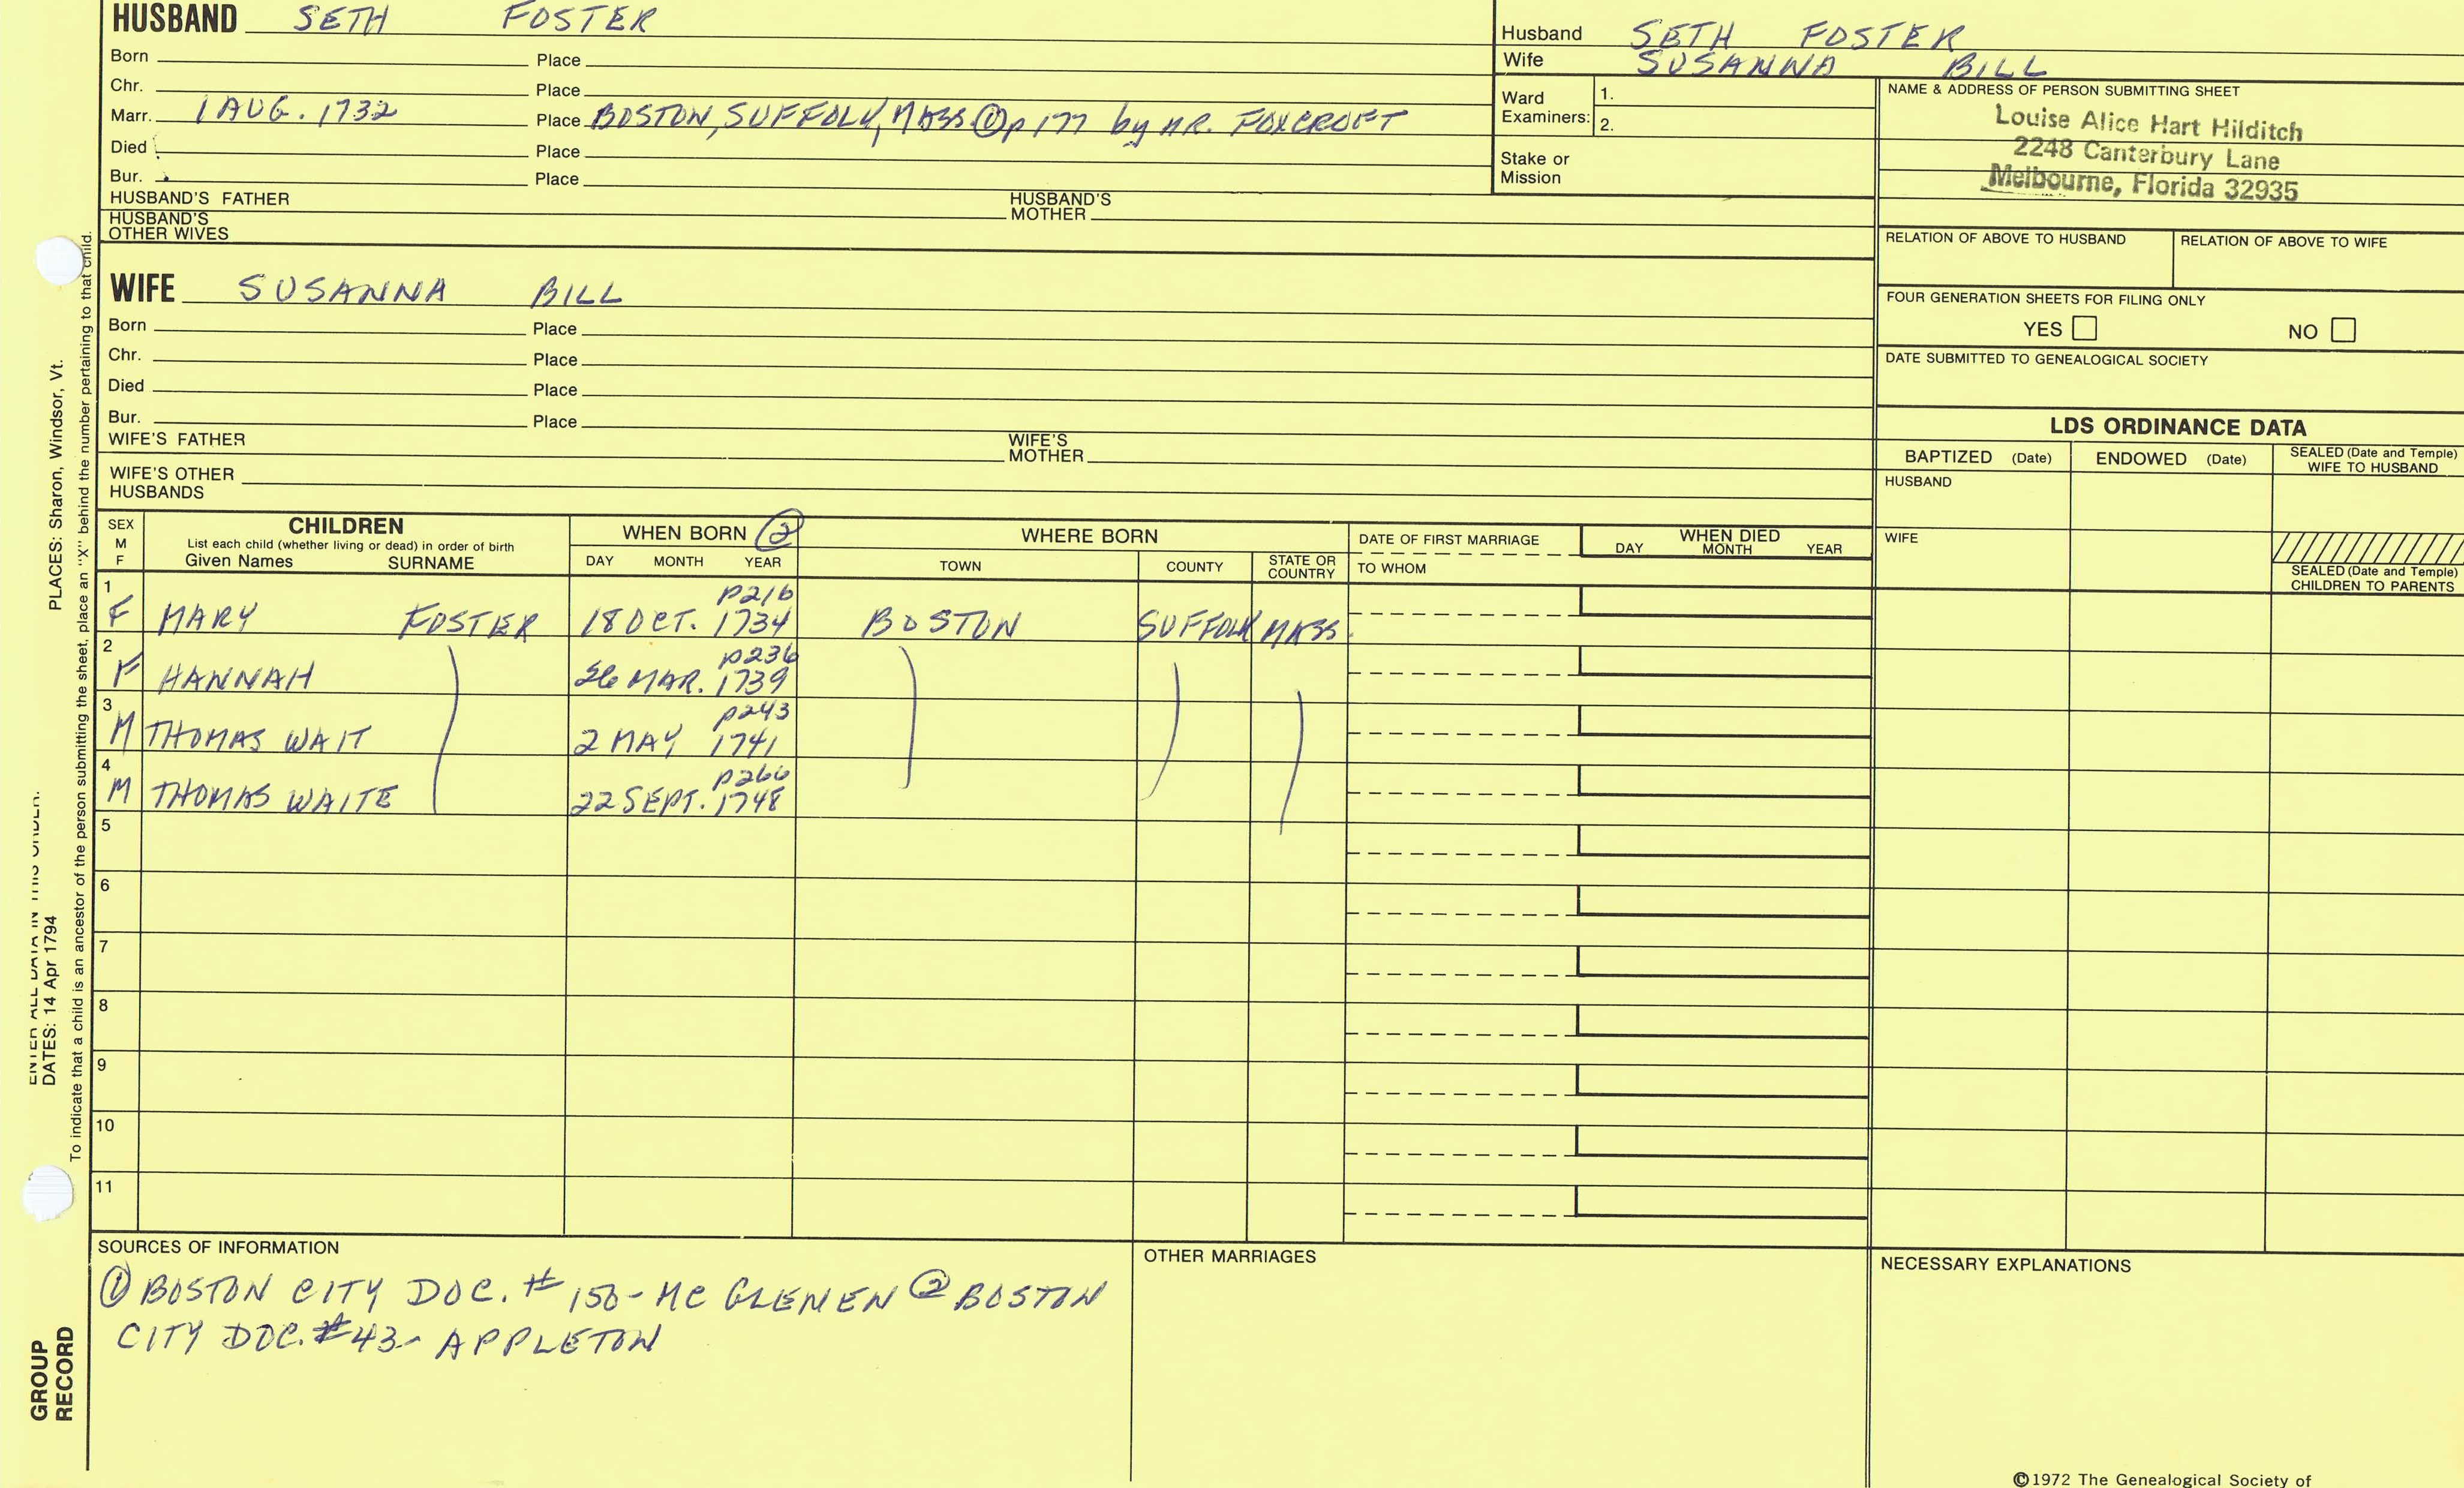 HUSBAND SETH FOSTER
Born Place
Chr. Place
Marr. 1 AUG. 1732 Place BOSTON, SUFFOLK, MASS. ① p 177 by MR. FOXCROFT
Died Place
Bur. Place
HUSBAND'S FATHER HUSBAND'S MOTHER
HUSBAND'S OTHER WIVES
Husband SETH FOSTER
Wife SUSANNA BILL
Ward Examiners: 1.
2.
Stake or Mission
NAME & ADDRESS OF PERSON SUBMITTING SHEET
Louise Alice Hart Hilditch
2248 Canterbury Lane
Melbourne, Florida 32935
RELATION OF ABOVE TO HUSBAND RELATION OF ABOVE TO WIFE
FOUR GENERATION SHEETS FOR FILING ONLY
YES NO
DATE SUBMITTED TO GENEALOGICAL SOCIETY
WIFE SUSANNA BILL
Born Place
Chr. Place
Died Place
Bur. Place
WIFE'S FATHER WIFE'S MOTHER
WIFE'S OTHER HUSBANDS
LDS ORDINANCE DATA
BAPTIZED (Date) ENDOWED (Date) SEALED (Date and Temple) WIFE TO HUSBAND
HUSBAND
WIFE
SEALED (Date and Temple) CHILDREN TO PARENTS
SEX M F
CHILDREN
List each child (whether living or dead) in order of birth
Given Names SURNAME
WHEN BORN ②
DAY MONTH YEAR
WHERE BORN
TOWN COUNTY STATE OR COUNTRY
DATE OF FIRST MARRIAGE
TO WHOM
WHEN DIED
DAY MONTH YEAR
p216
1 F MARY FOSTER 18 OCT. 1734 BOSTON SUFFOLK MASS.
p236
2 F HANNAH 26 MAR. 1739
p243
3 M THOMAS WAIT 2 MAY 1741
p266
4 M THOMAS WAITE 22 SEPT. 1748
5
6
7
8
9
10
11
SOURCES OF INFORMATION
① BOSTON CITY DOC. # 150 - MC GLENEN ② BOSTON
CITY DOC. # 43 - APPLETON
OTHER MARRIAGES
NECESSARY EXPLANATIONS
©1972 The Genealogical Society of
ENTER ALL DATA IN THIS ORDER:
DATES: 14 Apr 1794
PLACES: Sharon, Windsor, Vt.
To indicate that a child is an ancestor of the person submitting the sheet, place an "X" behind the number pertaining to that child.
GROUP
RECORD